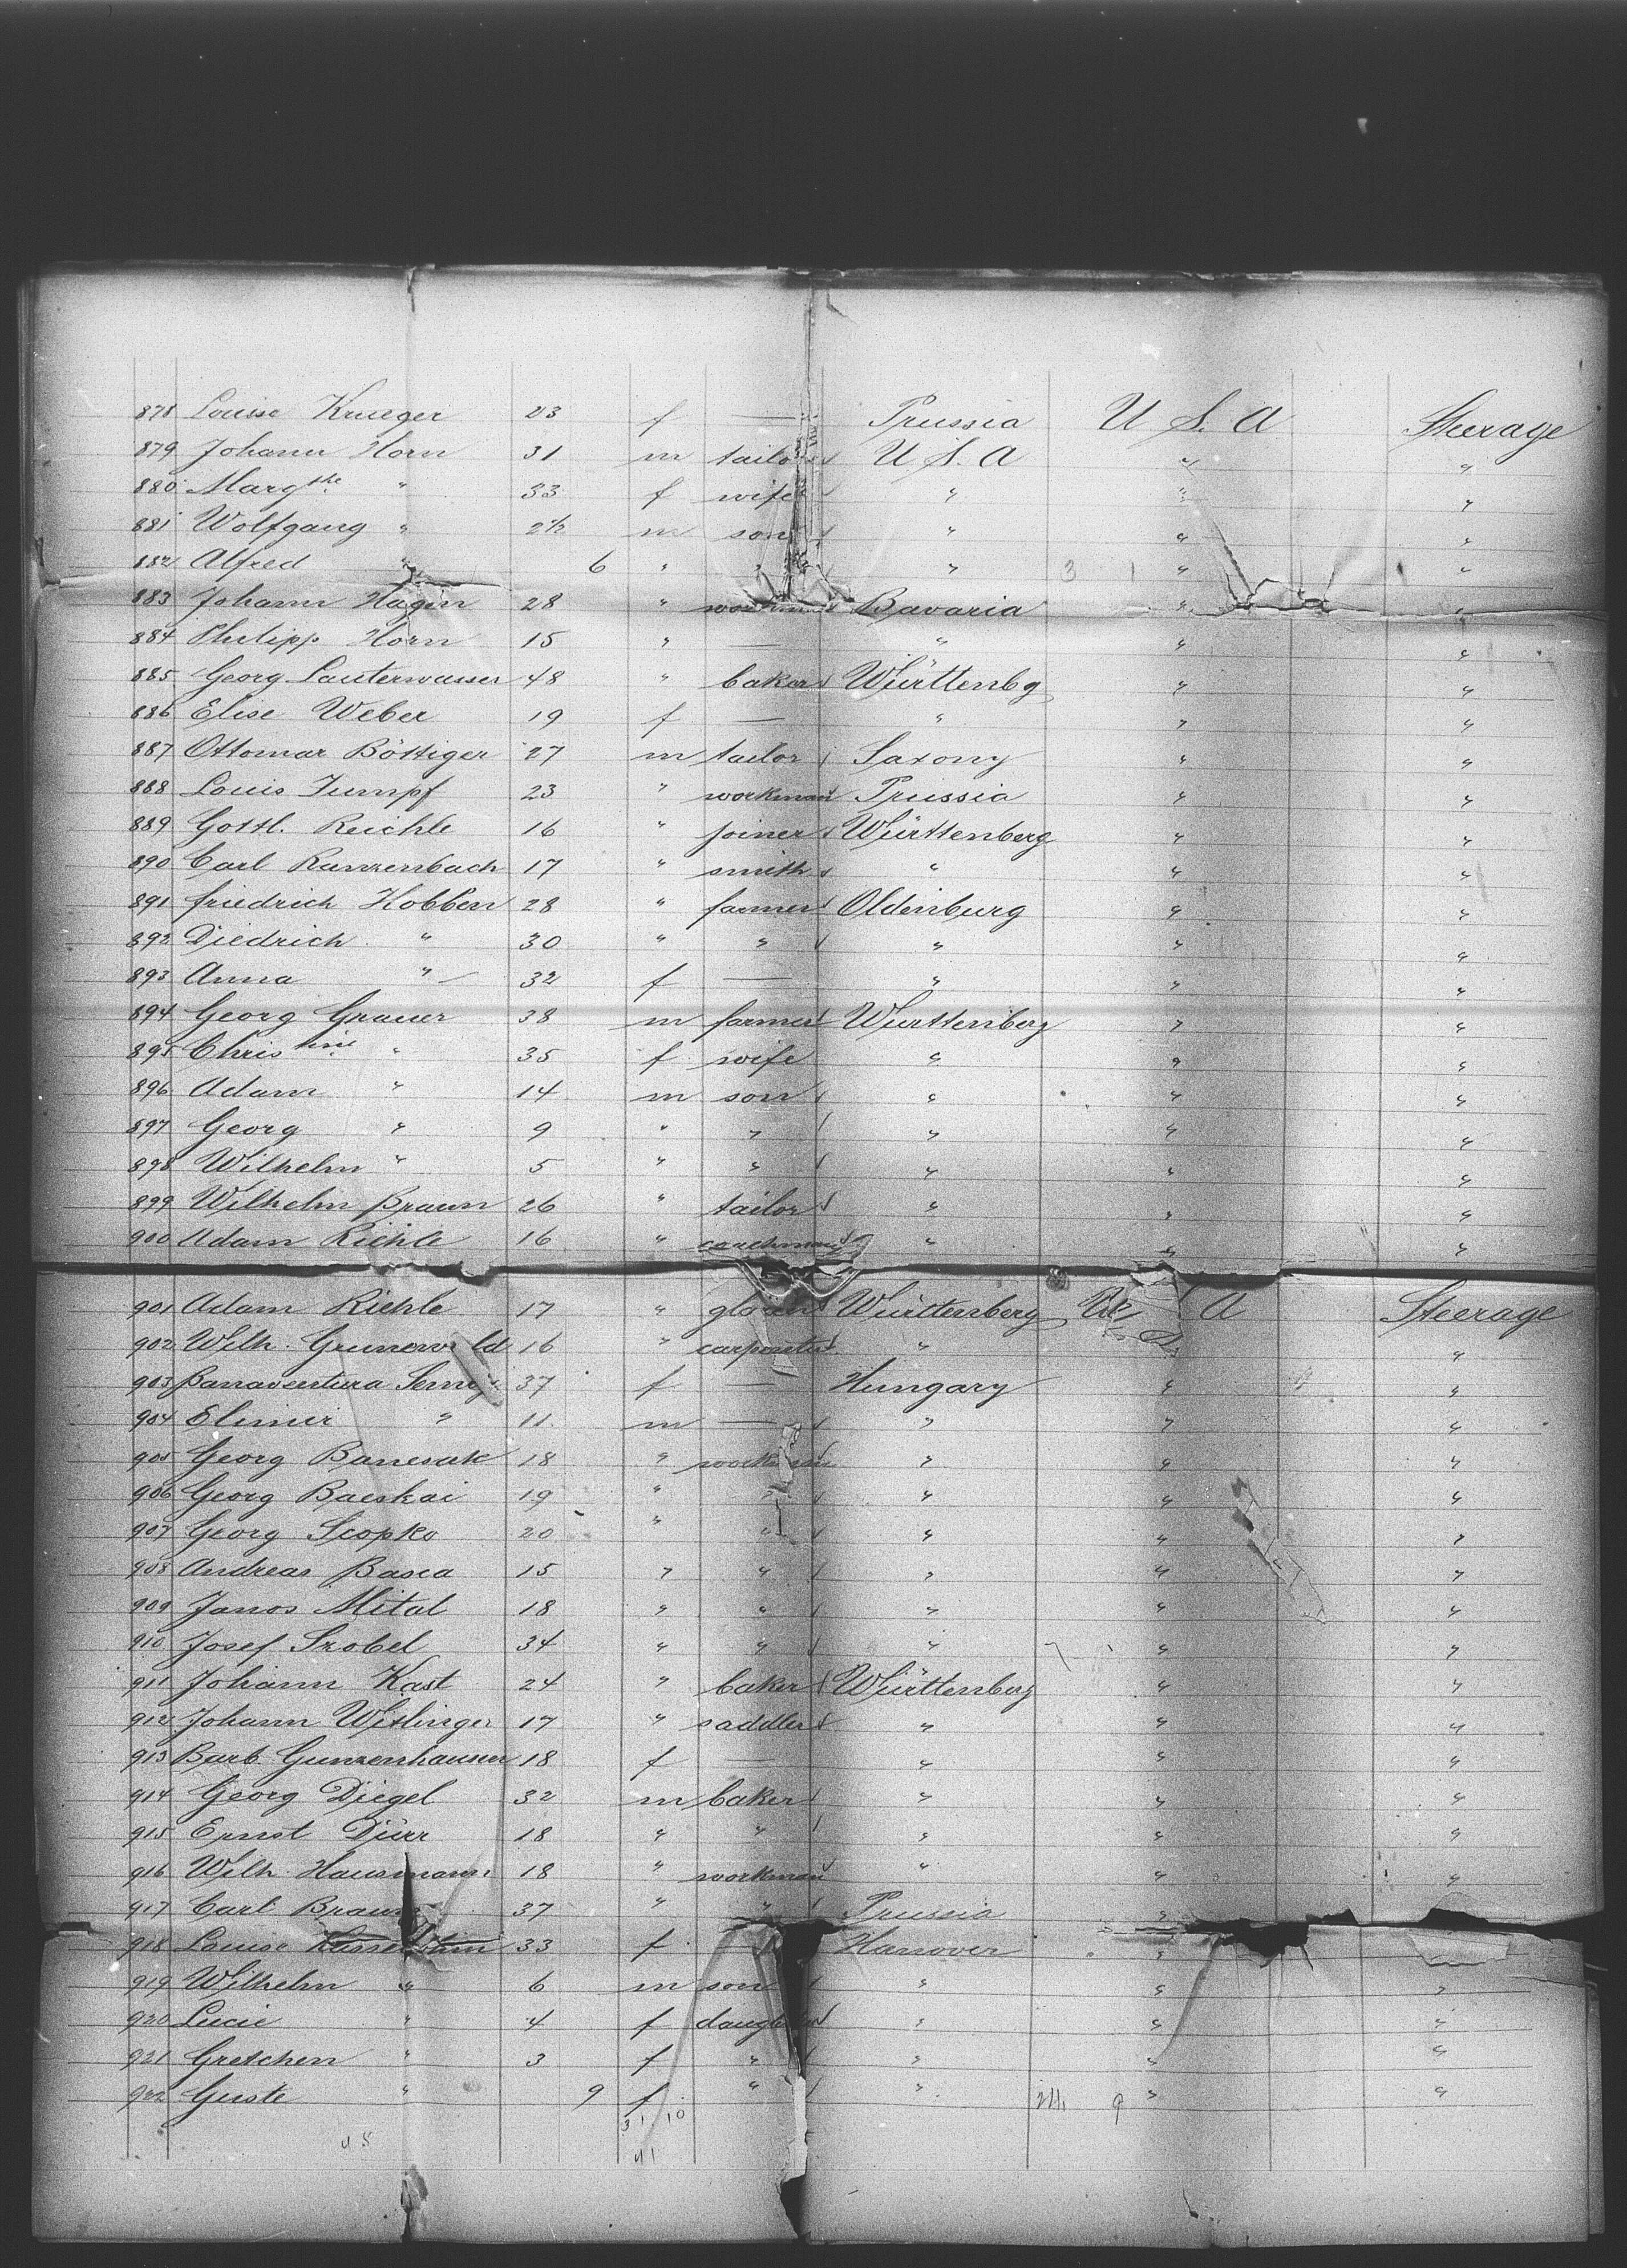 878 Louise Krueger 23 f — Prussia U S. A Steerage
879 Johann Horn 31 m tailor U S. A " "
880 Margthe " 33 f wife " " "
881 Wolfgang " 2½ m son " " "
882 Alfred " 6 " " " 3 1 " "
883 Johann Hagen 28 " workman Bavaria " "
884 Philipp Horn 15 " — " " "
885 Georg Lauterwasser 48 " baker Württenbg " "
886 Elise Weber 19 f — " " "
887 Ottomar Böttiger 27 m tailor Saxony " "
888 Louis Jumpf 23 " workman Prussia " "
889 Gottl. Reichle 16 " joiner Württenberg " "
890 Carl Ranzenbach 17 " smith " " "
891 friedrich Hobben 28 " farmer Oldenburg " "
892 Diedrich " 30 " " " " "
893 Anna " 32 f — " " "
894 Georg Grauer 38 m farmer Wurttenberg " "
895 Christine " 35 f wife " " "
896 Adam " 14 m son " " "
897 Georg " 9 " " " " "
898 Wilhelm " 5 " " " " "
899 Wilhelm Braun 26 " tailor " " "
900 Adam Riehle 16 " coachman " " "
901 Adam Riehle 17 " glazier Württenberg U A Steerage
902 Wilh. Grunewald 16 " carpenter " " "
903 Banaventura 37 f — Hungary " "
904 Elimir " 11 m — " " "
905 Georg Banesak 18 " workman " " "
906 Georg Bacskai 19 " " " " "
907 Georg Scopko 20 " " " " "
908 Andreas Basca 15 " " " " "
909 Janos Mital 18 " " " " "
910 Josef Szobel 34 " " " " "
911 Johann Kast 24 " baker Württenberg " "
912 Johann Weslinger 17 " saddler " " "
913 Barb. Gunzenhauser 18 f — " " "
914 Georg Diegel 32 m baker " " "
915 Ernst Dürr 18 " " " " "
916 Wilh. Hausmann 18 " workman " " "
917 Carl Braun 37 " " Prussia "
918 Louise 33 f — Hanover "
919 Wilhelm " 6 m son " " "
920 Lucie " 4 f daughter " " "
921 Gretchen " 3 f " " " "
922 Guste " 9 f " " 24 9 " "
31. 10
45 41